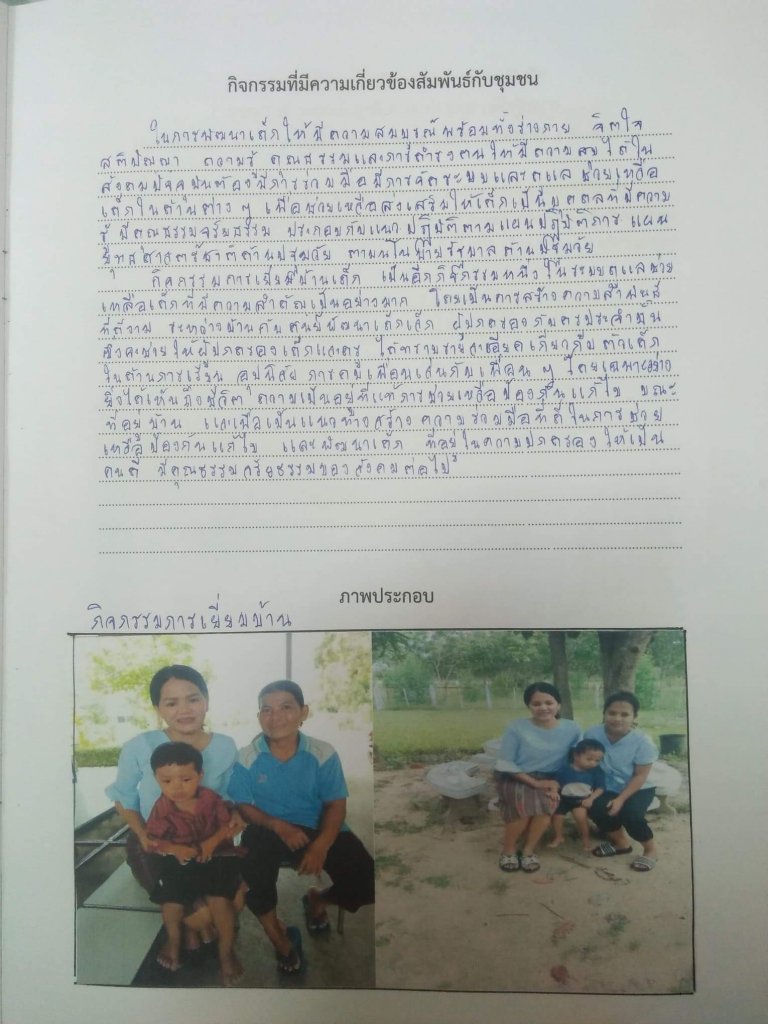 กิจกรรมที่มีความเกี่ยวข้องสัมพันธ์กับชุมชน
ในการพัฒนาเด็กให้มีความสมบูรณ์พร้อมทั้งร่างกาย จิตใจ
สติปัญญา ความรู้ คุณธรรมและการดำรงตนให้มีความสุขได้ใน
สังคมปัจจุบันต้องมีการร่วมมือ มีการจัดระบบและดูแล ช่วยเหลือ
เด็กในด้านต่างๆ เพื่อช่วยเหลือส่งเสริมให้เด็กเป็นบุคคลที่มีความ
รู้ มีคุณธรรมจริยธรรม ประกอบกับแนวปฏิบัติตามแผนปฏิบัติการ แผน
ยุทธศาสตร์ชาติด้านปฐมวัย ตามนโยบายรัฐบาลด้านปฐมวัย
กิจกรรมการเยี่ยมบ้านเด็ก เป็นอีกกิจกรรมหนึ่ง ในระบบดูแลช่วย
เหลือเด็กที่มีความสำคัญเป็นอย่างมาก โดยเป็นการสร้างความสัมพันธ์
ที่ดีงาม ระหว่างบ้านกับศูนย์พัฒนาเด็กเล็ก ผู้ปกครองกับครูประจำชั้น
ซึ่งจะช่วยให้ผู้ปกครองเด็กและครู ได้ทราบรายละเอียดเกี่ยวกับตัวเด็ก
ในด้านการเรียน อุปนิสัย การคบเพื่อนเล่นกับเพื่อน ๆ โดยเฉพาะอย่าง
ยิ่งได้เห็นถึงชีวิตความเป็นอยู่ที่แท้การช่วยเหลือป้องกันแก้ไข ขณะ
ที่อยู่บ้าน และเพื่อเป็นแนวทางสร้างความร่วมมือที่ดีในการช่วย
เหลือป้องกันแก้ไข และพัฒนาเด็ก ที่อยู่ในความปกครอง ให้เป็น
คนดี มีคุณธรรมจริยธรรมของสังคมต่อไป
ภาพประกอบ
กิจกรรมการเยี่ยมบ้าน